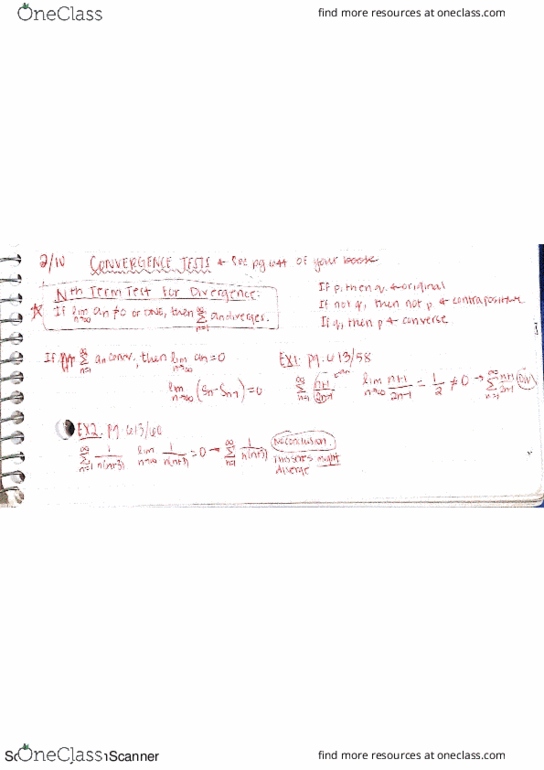 OneClass
find more resources at oneclass.com
2/10 CONVERGENCE TESTS * See pg of your book
Nth Term Test for Divergence:
If lim n→∞ an ≠ 0 or DNE, then ∞ Σ n=1 an diverges.
If p, then q. ← original
If not q, then not p ← contrapositive
If q, then p ← converse
If ∞ Σ n=1 an conv., then lim n→∞ an = 0
lim n→∞ (Sn - Sn-1) = 0
EX1: pg. 613/58
∞ Σ n=1 n+1/2n-1 lim n→∞ n+1/2n-1 = 1/2 ≠ 0 → ∞ Σ n=1 n+1/2n-1 div.
EX2: pg. 613/60
∞ Σ n=1 1/n(n+3) lim n→∞ 1/n(n+3) = 0 → ∞ Σ n=1 1/n(n+3) No conclusion.
This series might
diverge
OneClass
Scanner
find more resources at oneclass.com